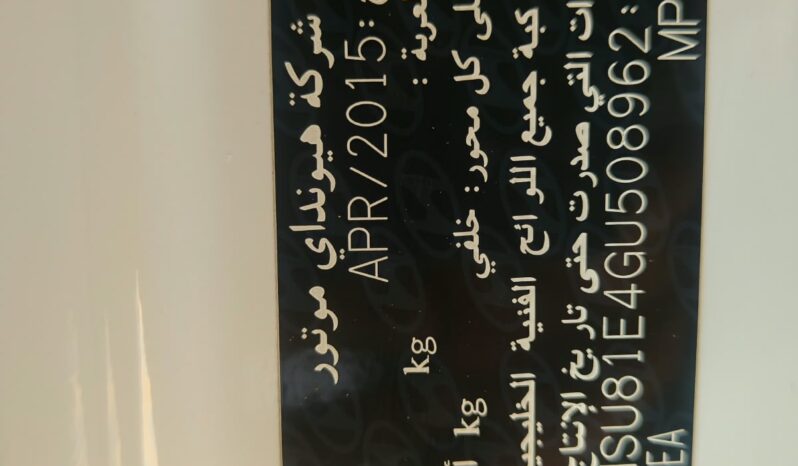 شركة هيونداي موتور
APR/2015:
لعربة : kg
لى كل محور: خلفي kg
كبة جميع اللوائح الفنية الخليجي
ات التي صدرت حتى تاريخ الإنتاج
SU81E4GU508962:
EA MP